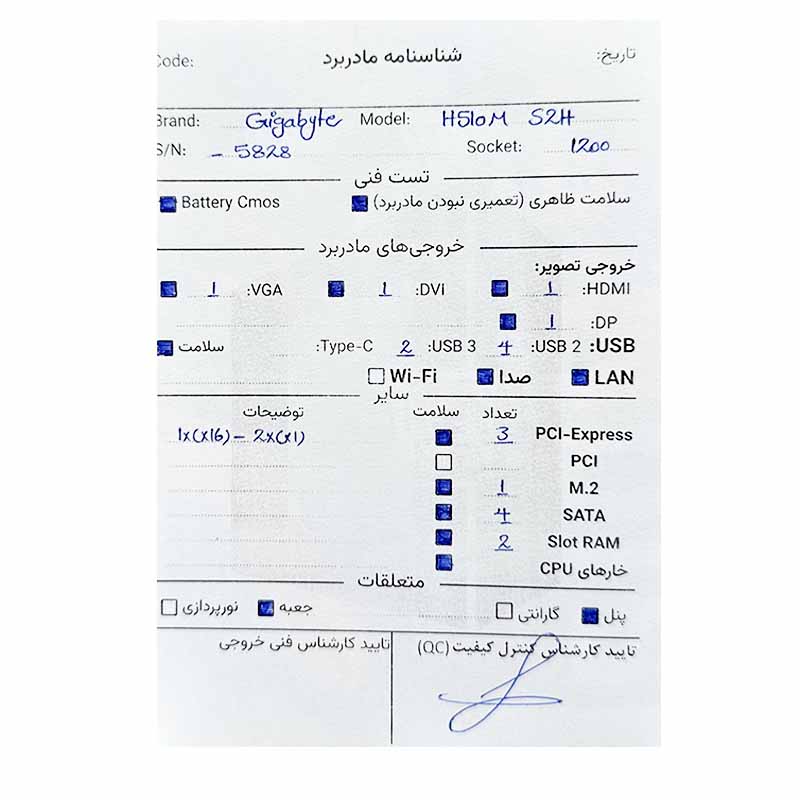 تاریخ: شناسنامه مادربرد Code:
Brand: Gigabyte Model: H510M S2H
S/N: - 5828 Socket: 1200
تست فنی
سلامت ظاهری (تعمیری نبودن مادربرد) Battery Cmos
خروجی‌های مادربرد
خروجی تصویر:
HDMI: 1 DVI: 1 VGA: 1
DP: 1
USB: USB 2: 4 USB 3: 2 Type-C: سلامت
LAN صدا Wi-Fi
سایر
تعداد سلامت توضیحات
PCI-Express 3 1x(x16) - 2x(x1)
PCI
M.2 1
SATA 4
Slot RAM 2
خارهای CPU
متعلقات
پنل گارانتی جعبه نورپردازی
تایید کارشناس کنترل کیفیت (QC) تایید کارشناس فنی خروجی